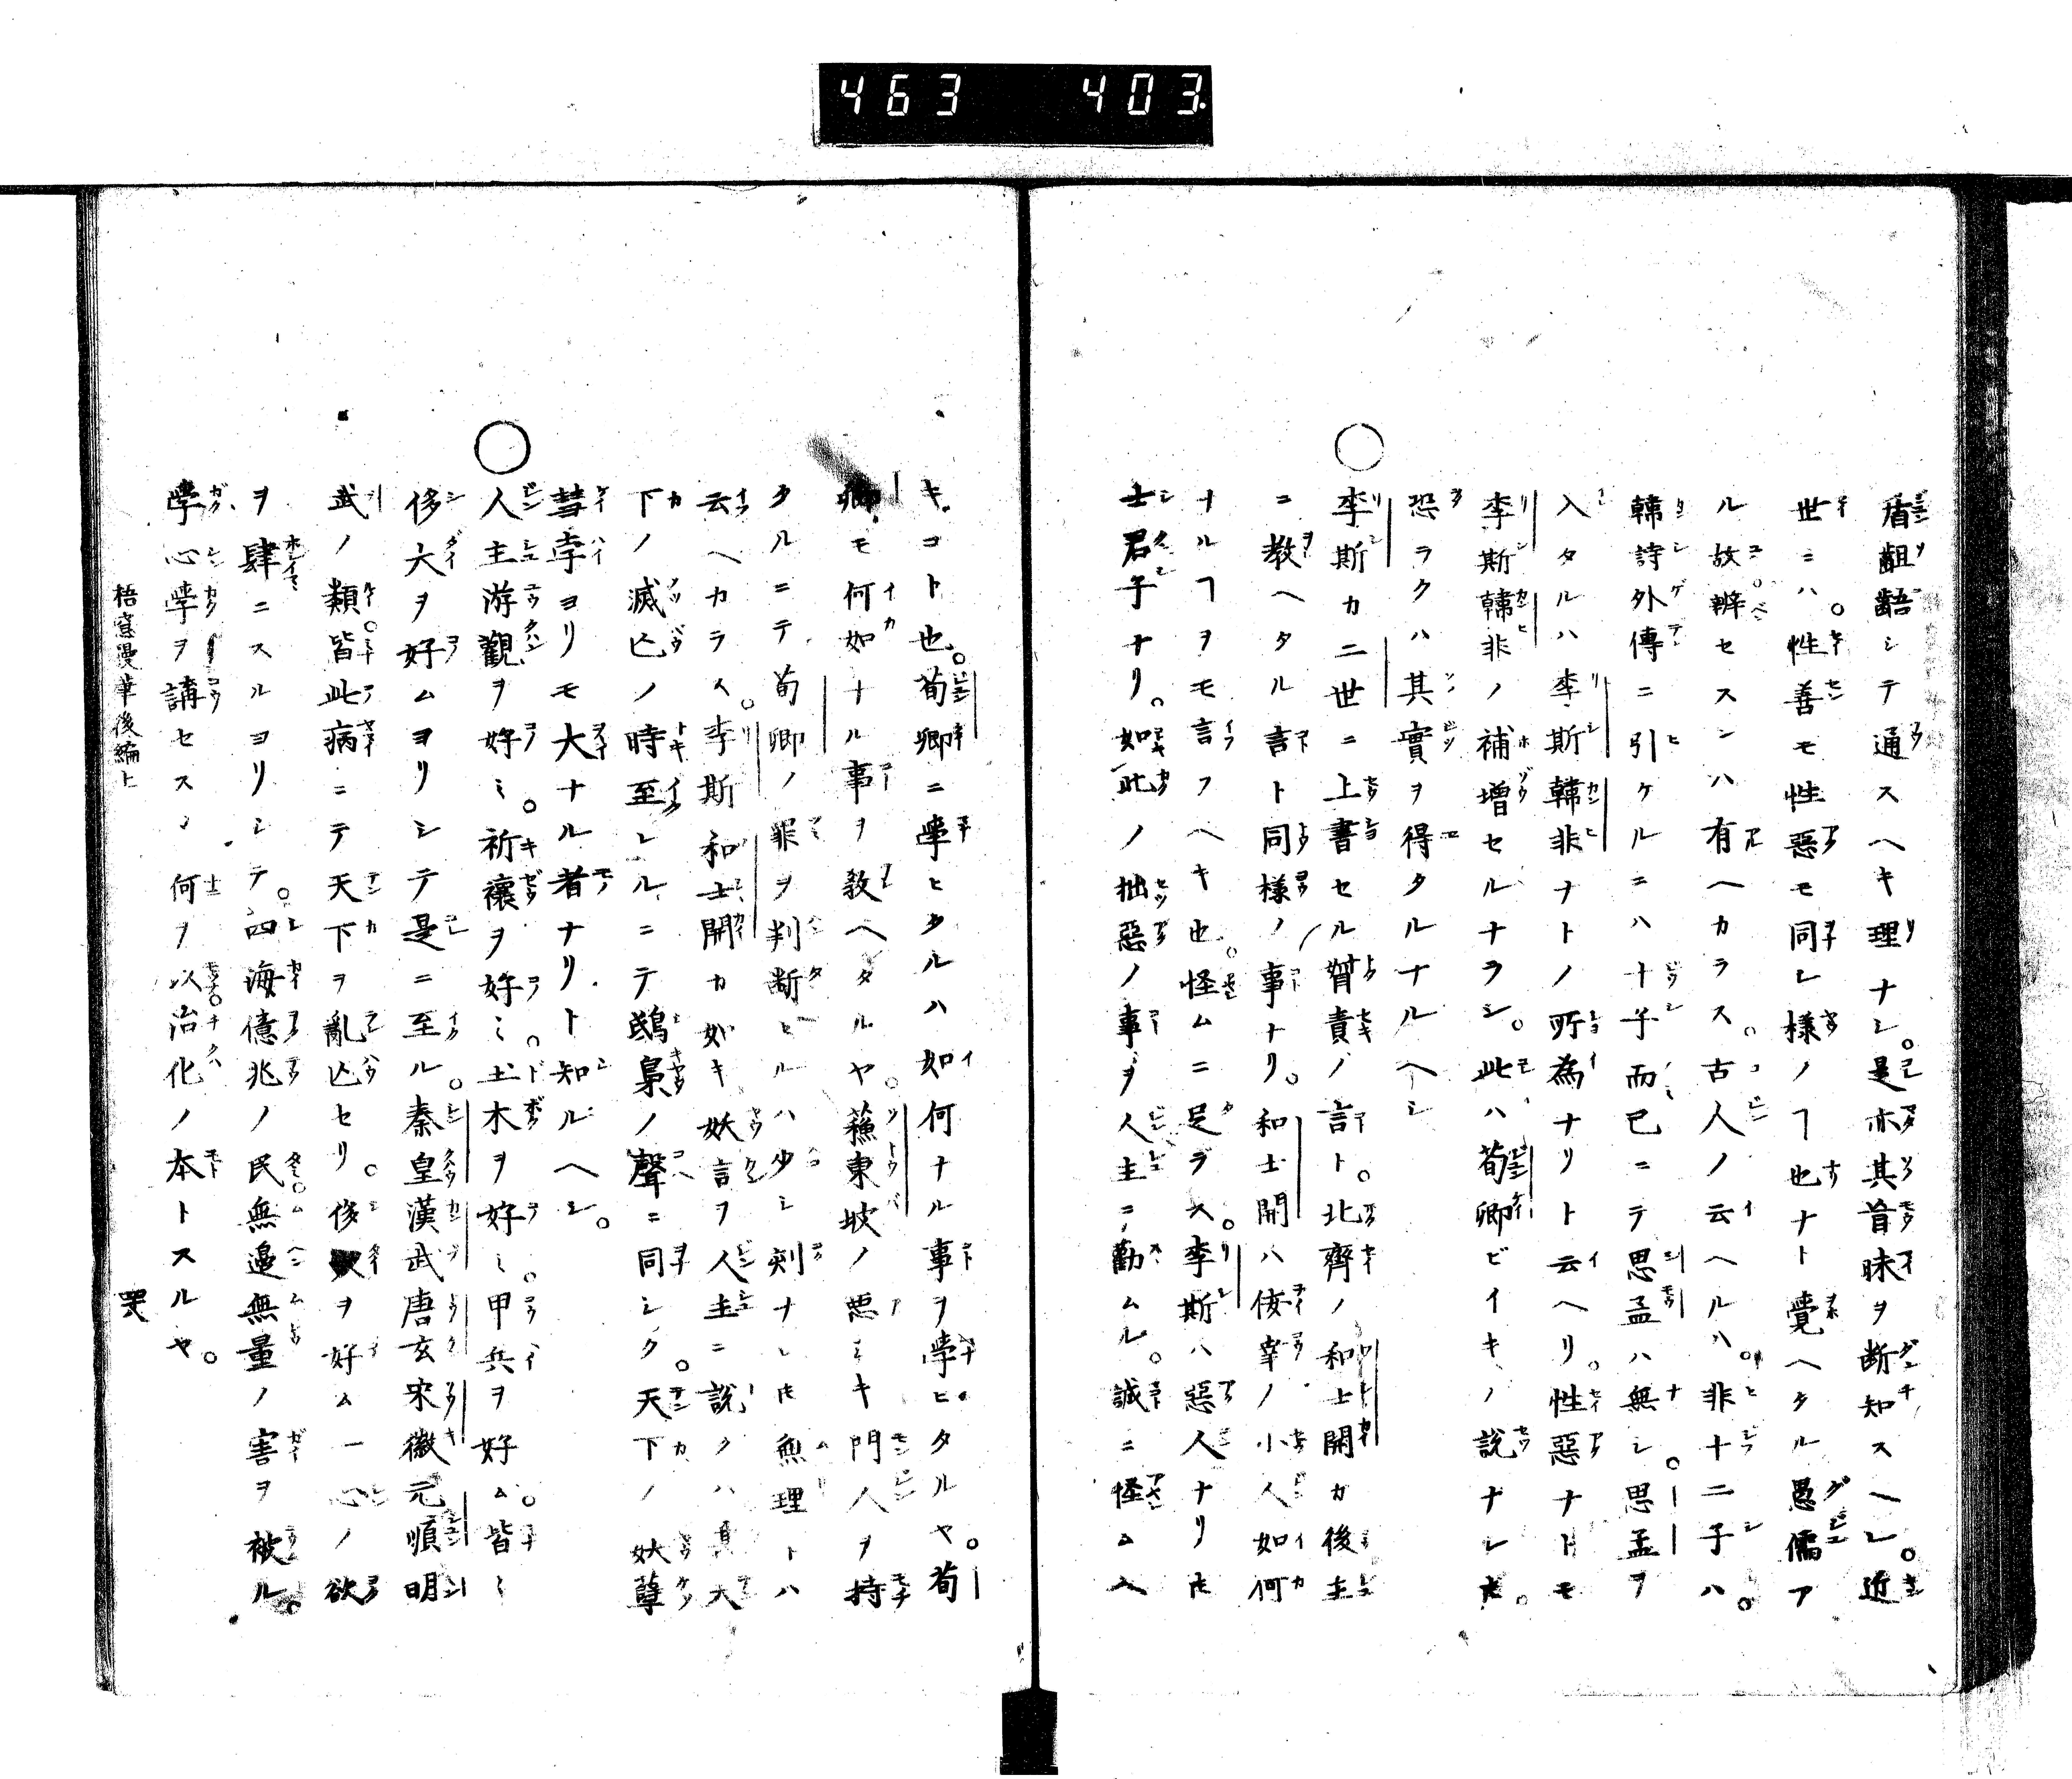 463 403
盾齟齬シテ通スヘキ理ナシ。是亦其首昧ヲ断知スヘレ。近
世ニハ。性善モ性惡モ同レ樣ノヿ也ナト覺ヘタル愚儒ア
ル故。辨セスンハ有ヘカラス。古人ノ云ヘルハ。非十二子ハ。
韓詩外傳ニ引ケルニハ十子而已ニテ思孟ハ無シ。思孟ヲ
入タルハ李斯韓非ナトノ所為ナリト云ヘリ。性惡ナトモ
李斯韓非ノ補增セルナラシ。此ハ荀卿ビイキノ說ナレ𪜈。
恐ラクハ其實ヲ得タルナルヘシ
○李斯カ二世ニ上書セル督責ノ言ト。北齊ノ和士開カ後主
ニ教ヘタル言ト同樣ノ事ナリ。和士開ハ佞幸ノ小人如何
ナルヿヲモ言フヘキ也。怪ムニ足ラス。李斯ハ惡人ナリ𪜈
士君子ナリ。如此ノ拙惡ノ事ヲ人主ニ勸ムル。誠ニ怪ムヘ
キコト也。荀卿ニ學ヒタルハ如何ナル事ヲ學ヒタルヤ。荀
卿モ何如ナル事ヲ教ヘタルヤ。蘓東坡ノ悪ミキ門人ヲ持
タルニテ荀卿ノ罪ヲ判断セルハ少シ刻ナレ𪜈無理トハ
云ヘカラス。李斯和士開カ如キ妖言ヲ人主ニ說クハ真大
下ノ滅亡ノ時至レルニテ鴟梟ノ聲ニ同シク。天下ノ妖孽
彗孛ヨリモ大ナル者ナリト知ルヘシ。
○人主游觀ヲ好ミ。祈禳ヲ好ミ。土木ヲ好ミ。甲兵ヲ好ム。皆ミ
侈大ヲ好ムヨリシテ是ニ至ル。秦皇漢武唐玄宋徽元順明
武ノ類。皆此病ニテ天下ヲ亂亡セリ。侈ヲ好ム一心ノ欲
ヲ肆ニスルヨリシテ。四海億兆ノ民。無邊無量ノ害ヲ被ル。
學心學ヲ講セスン何ヲ以治化ノ本トスルヤ。
梧窓漫筆後編上